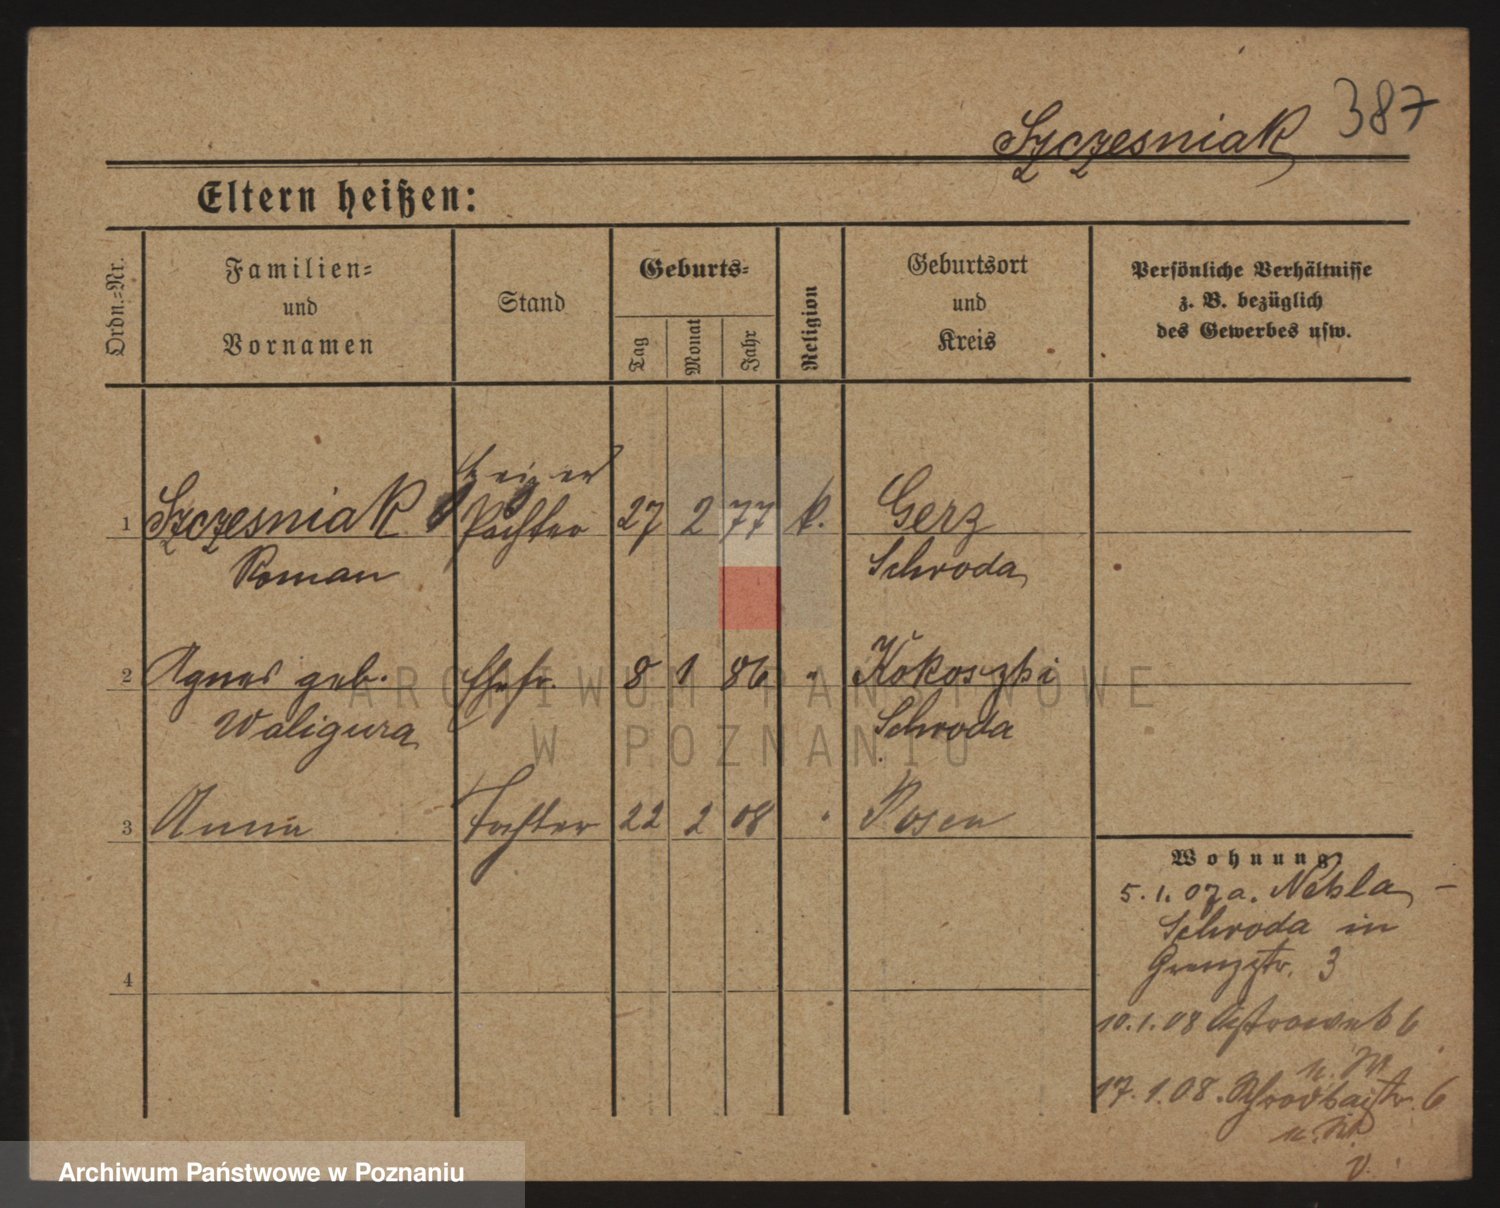 Szczesniak 387
Eltern heißen:
Ordn.=Nr.
Familien=
und
Vornamen
Stand
Geburts=
Tag
Monat
Jahr
Religion
Geburtsort
und
Kreis
Persönliche Verhältnisse
z. B. bezüglich
des Gewerbes usw.
1 Szczesniak Pächter 27 2 77 k. Gerz
Roman Schroda
2 Agnes geb. Ehefr. 8 1 86 " Kokoszki
Waligura Schroda
3 Anna Tochter 22 2 08 " Posen
4
Wohnung:
5. 1. 07 a. Nekla –
Schroda in
Grenzstr. 3
10. 1. 08 6
17. 1. 08. 6
ARCHIWUM PAŃSTWOWE
W POZNANIU
Archiwum Państwowe w Poznaniu